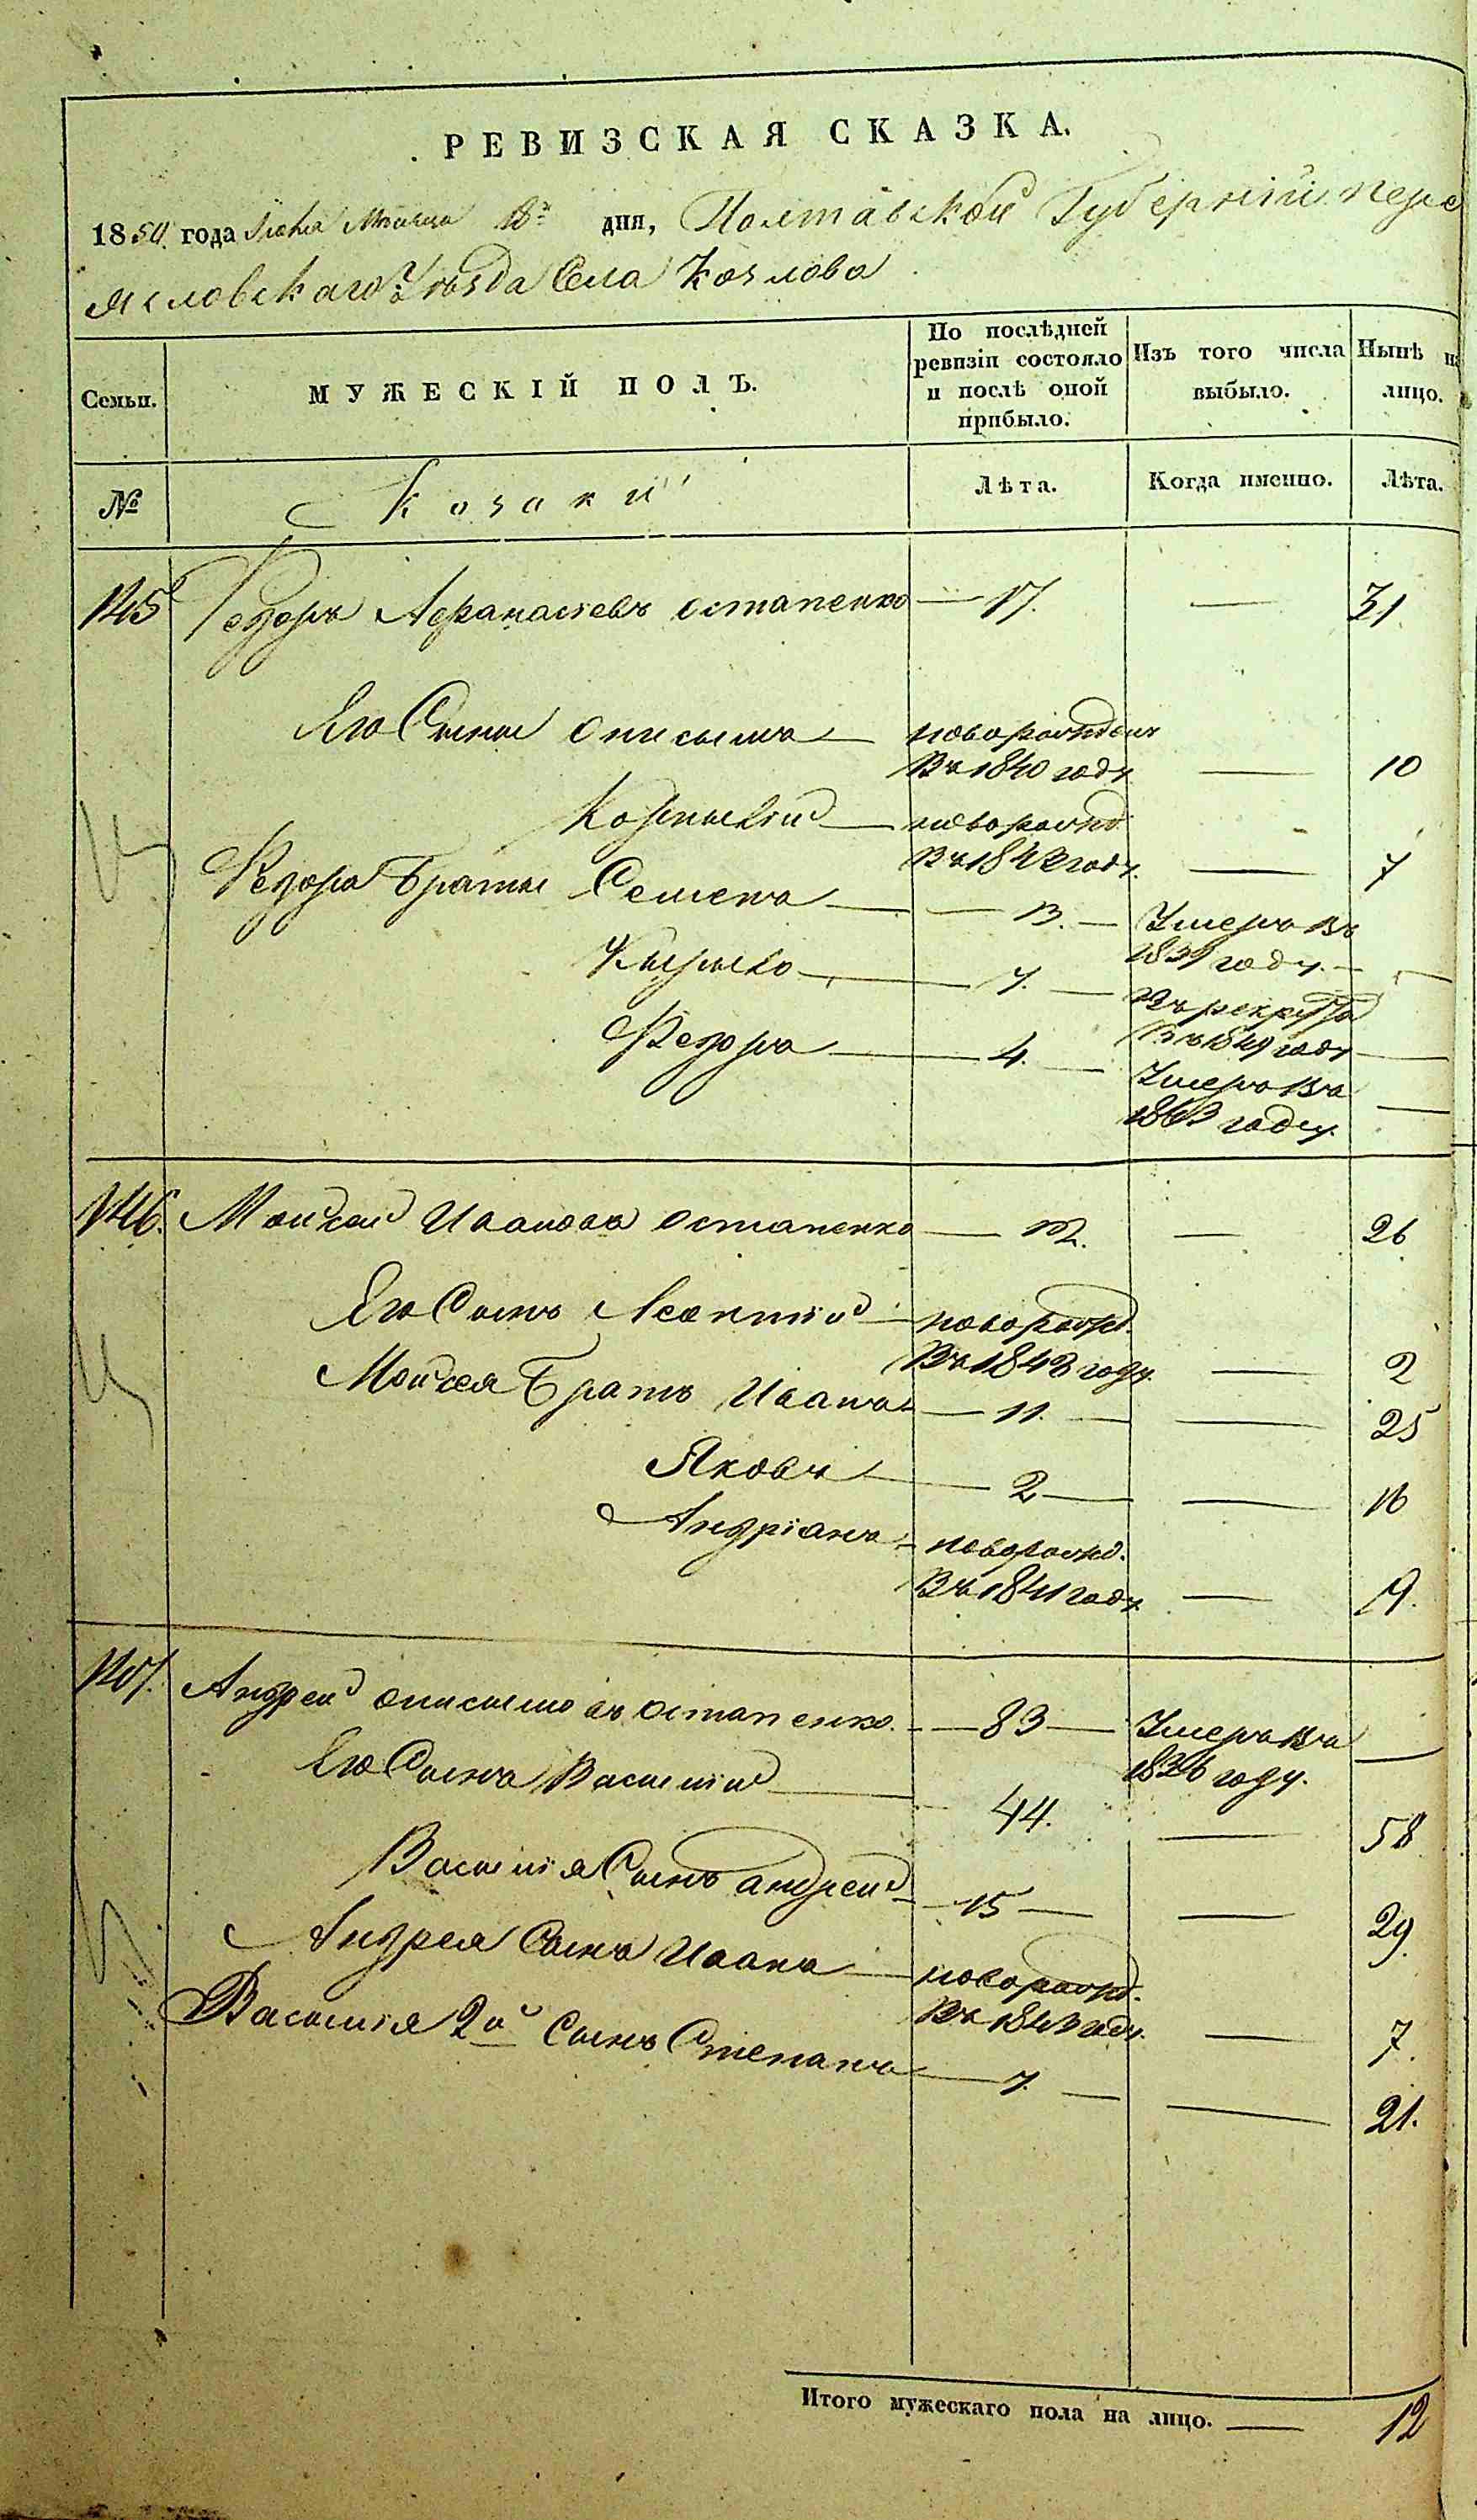 РЕВИЗСКАЯ СКАЗКА.
1850 года Июля Месяца 18го дня, Полтавской Губернiи Пере
яславскаго Уѣзда Села Козлова
Семьи.
МУЖЕСКІЙ ПОЛЪ.
По послѣдней ревизіи состояло и послѣ оной прибыло.
Изъ того числа выбыло.
Нынѣ на лицо.
№
Козаки
Лѣта.
Когда именно.
Лѣта.
145 Федоръ Афанасіевъ Остапенко — 17. — 31
Его Сыны Онисымъ — новорожден
Въ 1840 году — 10
Корнылій — новорожд
Въ 1843 году. — 7
Федора Браты Семенъ — 13. — Умеръ въ
1839 году. —
Кырыло — 7. — Въ рекруты
Въ 1849 году —
Федоръ — 4. — Умеръ въ
1843 году. —
146. Моисей Ивановъ Остапенко — 12. — 26
Его Сынъ Леонтій — новорожд.
Въ 1848 году. — 2
Моисея Братъ Иванъ — 11. — 25
Яковъ — 2 — 16
Андріанъ — новорожд.
Въ 1841 году. — 9.
147. Андрей Онисымовъ Остапенко. — 83 — Умеръ въ
1836 году. —
Его Сынъ Василій — 44. — 58
Василія Сынъ Андрей — 15 — 29.
Андрея Сынъ Иванъ — новорожд.
Въ 1843 году. — 7.
Василія 2й Сынъ Степанъ — 7. — 21.
Итого мужескаго пола на лицо. — 12